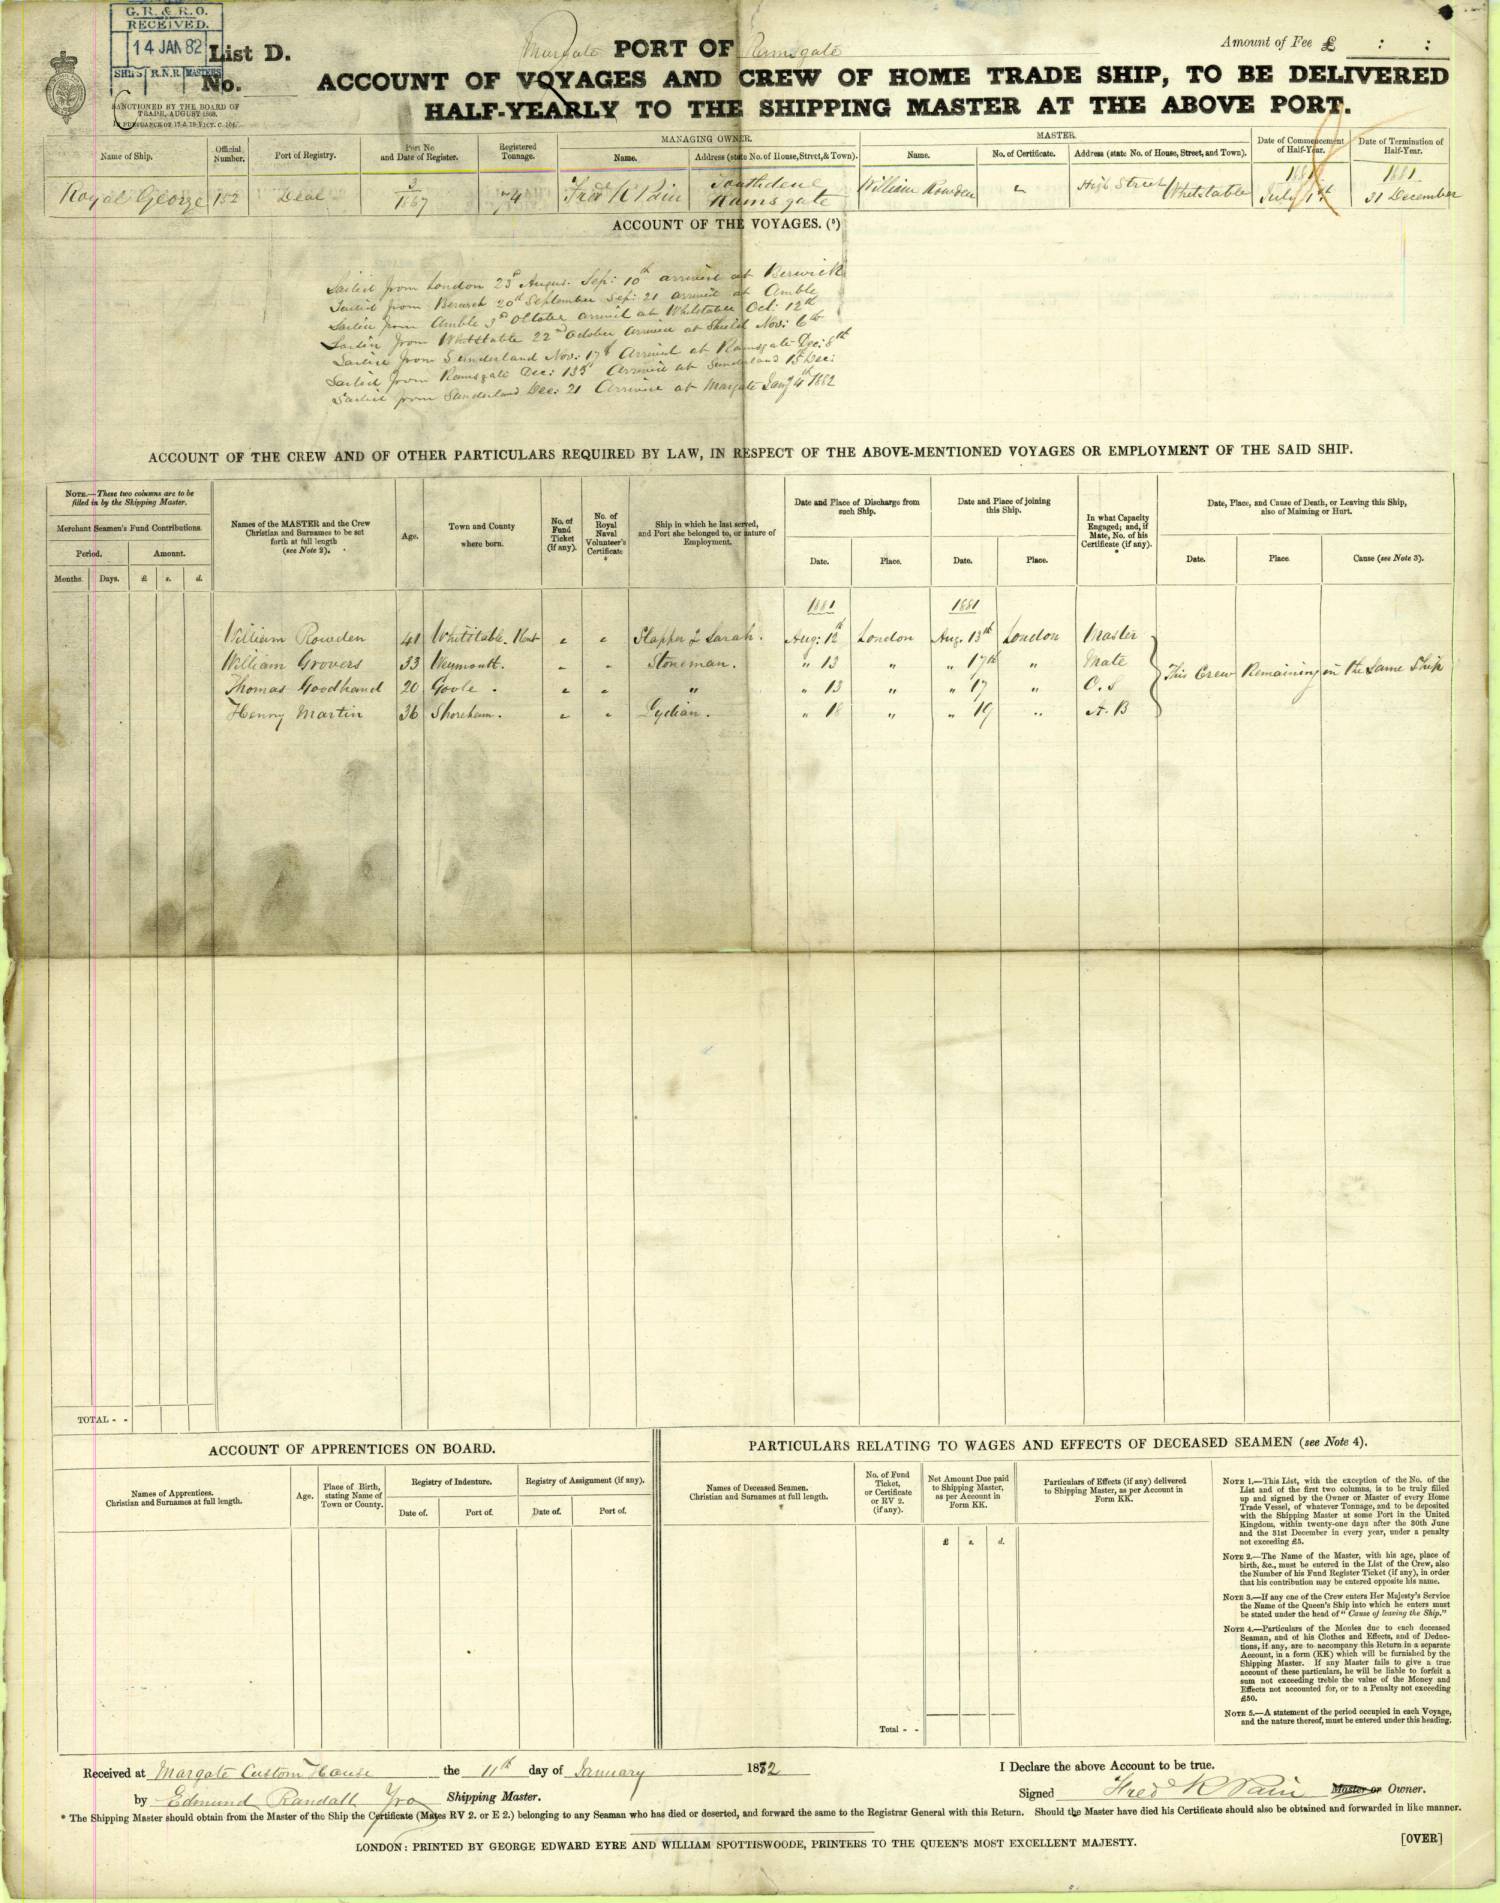 G.R. & R.O.
RECEIVED.
14 JAN 82
SHIPS R.N.R. MASTERS
List D.
No.
SANCTIONED BY THE BOARD OF
TRADE, AUGUST 1868.
IN PURSUANCE OF 17 & 18 VICT. C. 104.
Margate PORT OF Ramsgate
Amount of Fee £ : :
ACCOUNT OF VOYAGES AND CREW OF HOME TRADE SHIP, TO BE DELIVERED
HALF-YEARLY TO THE SHIPPING MASTER AT THE ABOVE PORT.
Name of Ship. Official Number. Port of Registry. Port No and Date of Register. Registered Tonnage. MANAGING OWNER. Name. Address (state No. of House, Street, & Town). MASTER. Name. No. of Certificate. Address (state No. of House, Street, and Town). Date of Commencement of Half-Year. Date of Termination of Half-Year.
Royal George 152 Deal 3/1867 74 Fred K Pain Southdene Ramsgate William Rowden " High Street Whitstable 1881 July 1st 1881 31 December
ACCOUNT OF THE VOYAGES. (5)
Sailed from London 23d Augus. Sep: 10th arrived at Berwick
Sailed from Berwick 20th September Sep: 21 arrived at Amble
Sailed from Amble 3d October arrived at Whitstable Oct: 12th
Sailed from Whitstable 22nd October Arrived at Shield Nov: 6th
Sailed from Sunderland Nov: 17th Arrived at Ramsgate Dec: 8th
Sailed from Ramsgate Dec: 13th Arrived at Sunderland 15th Dec:
Sailed from Sunderland Dec: 21 Arrived at Margate Jany 4th 1882
ACCOUNT OF THE CREW AND OF OTHER PARTICULARS REQUIRED BY LAW, IN RESPECT OF THE ABOVE-MENTIONED VOYAGES OR EMPLOYMENT OF THE SAID SHIP.
NOTE.—These two columns are to be filled in by the Shipping Master.
Merchant Seamen's Fund Contributions.
Period. Amount.
Months. Days. £ s. d.
Names of the MASTER and the Crew Christian and Surnames to be set forth at full length (see Note 2).
Age.
Town and County where born.
No. of Fund Ticket (if any).
No. of Royal Naval Volunteer's Certificate *
Ship in which he last served, and Port she belonged to, or nature of Employment.
Date and Place of Discharge from such Ship.
Date. Place.
Date and Place of joining this Ship.
Date. Place.
In what Capacity Engaged; and, if Mate, No. of his Certificate (if any). *
Date, Place, and Cause of Death, or Leaving this Ship, also of Maiming or Hurt.
Date. Place. Cause (see Note 3).
1881 1881
William Rowden 41 Whitstable. Kent " " Sarah. Aug: 12th London Aug. 13th London Master
William Grovers 33 Weymouth. " " Stoneman. " 13 " " 17th " Mate
Thomas Goodhand 20 Goole. " " " " 13 " " 17 " O.S
Henry Martin 36 Shoreham. " " Lydian. " 18 " " 19 " A.B
This Crew Remaining in the Same Ship
TOTAL - -
ACCOUNT OF APPRENTICES ON BOARD.
Names of Apprentices. Christian and Surnames at full length.
Age.
Place of Birth, stating Name of Town or County.
Registry of Indenture.
Date of. Port of.
Registry of Assignment (if any).
Date of. Port of.
PARTICULARS RELATING TO WAGES AND EFFECTS OF DECEASED SEAMEN (see Note 4).
Names of Deceased Seamen. Christian and Surnames at full length.
No. of Fund Ticket, or Certificate or RV 2. (if any).
Net Amount Due paid to Shipping Master, as per Account in Form KK.
£ s. d.
Particulars of Effects (if any) delivered to Shipping Master, as per Account in Form KK.
Total - -
NOTE 1.—This List, with the exception of the No. of the
List and of the first two columns, is to be truly filled
up and signed by the Owner or Master of every Home
Trade Vessel, of whatever Tonnage, and to be deposited
with the Shipping Master at some Port in the United
Kingdom, within twenty-one days after the 30th June
and the 31st December in every year, under a penalty
not exceeding £5.
NOTE 2.—The Name of the Master, with his age, place of
birth, &c., must be entered in the List of the Crew, also
the Number of his Fund Register Ticket (if any), in order
that his contribution may be entered opposite his name.
NOTE 3.—If any one of the Crew enters Her Majesty's Service
the Name of the Queen's Ship into which he enters must
be stated under the head of "Cause of leaving the Ship."
NOTE 4.—Particulars of the Monies due to each deceased
Seaman, and of his Clothes and Effects, and of Deduc-
tions, if any, are to accompany this Return in a separate
Account, in a form (KK) which will be furnished by the
Shipping Master. If any Master fails to give a true
account of these particulars, he will be liable to forfeit a
sum not exceeding treble the value of the Money and
Effects not accounted for, or to a Penalty not exceeding
£50.
NOTE 5.—A statement of the period occupied in each Voyage,
and the nature thereof, must be entered under this heading.
Received at Margate Custom House the 11th day of January 1882
I Declare the above Account to be true.
by Edmund Randall Shipping Master.
Signed Fred K Pain Master or Owner.
* The Shipping Master should obtain from the Master of the Ship the Certificate (Mates RV 2. or E 2.) belonging to any Seaman who has died or deserted, and forward the same to the Registrar General with this Return. Should the Master have died his Certificate should also be obtained and forwarded in like manner.
LONDON: PRINTED BY GEORGE EDWARD EYRE AND WILLIAM SPOTTISWOODE, PRINTERS TO THE QUEEN'S MOST EXCELLENT MAJESTY.
[OVER]